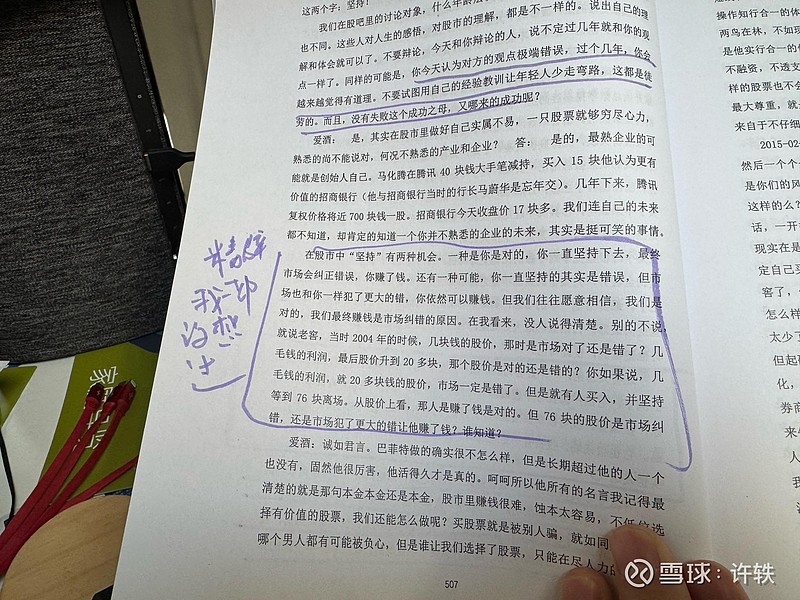 这两个字：坚持！
我们在股吧里的讨论对象，什么年龄
也不同。这些人对人生的感悟，对股市的理解，都是不一样的。说出自己的理
解和体会就可以了。不要辩论，今天和你辩论的人，说不定过几年就和你的观
点一样了。同样的可能是，你今天认为对方的观点极端错误，过个几年，你会
越来越觉得有道理。不要试图用自己的经验教训让年轻人少走弯路，这都是徒
劳的。而且，没有失败这个成功之母，又哪来的成功呢？
爱酒： 是，其实在股市里做好自己实属不易，一只股票就够穷尽心力，
熟悉的尚不能说对，何况不熟悉的产业和企业？ 答： 是的，最熟企业的可
能就是创始人自己。马化腾在腾讯 40 块钱大手笔减持，买入 15 块他认为更有
价值的招商银行（他与招商银行当时的行长马蔚华是忘年交）。几年下来，腾讯
复权价格将近 700 块钱一股。招商银行今天收盘价 17 块多。我们连自己的未来
都不知道，却肯定的知道一个你并不熟悉的企业的未来，其实是挺可笑的事情。
在股市中“坚持”有两种机会。一种是你是对的，你一直坚持下去，最终
市场会纠正错误，你赚了钱。还有一种可能，你一直坚持的其实是错误，但市
场也和你一样犯了更大的错，你依然可以赚钱。但我们往往愿意相信，我们是
对的，我们最终赚钱是市场纠错的原因。在我看来，没人说得清楚。别的不说，
就说老窖，当时 2004 年的时候，几块钱的股价，那时是市场对了还是错了？几
毛钱的利润，最后股价升到 20 多块，那个股价是对的还是错的？你如果说，几
毛钱的利润，就 20 多块钱的股价，市场一定是错了。但是就有人买入，并坚持
等到 76 块离场。从股价上看，那人是赚了钱是对的。但 76 块的股价是市场纠
错，还是市场犯了更大的错让他赚了钱？谁知道？
爱酒：诚如君言。巴菲特做的确实很不怎么样，但是长期超过他的人一个
也没有，固然他很厉害，他活得久才是真的。呵呵所以他所有的名言我记得最
清楚的就是那句本金本金还是本金，股市里赚钱很难，蚀本太容易，不
择有价值的股票，我们还能怎么做呢？买股票就是被别人骗，就如同
哪个男人都有可能被负心，但是谁让我们选择了股票，只能在尽人力
507
操作知行合一的
两鸟在林，不如
是他实行合一的
不融资，不透支
样的股票也不会
最大尊重，就
来自于不仔细
2015-02-
然后一个个
是你们的风
这样的么？
话，一开
现实在是
定自己
客了，
怎么样
太少了
但起
化，
券商
来
雪球：许轶